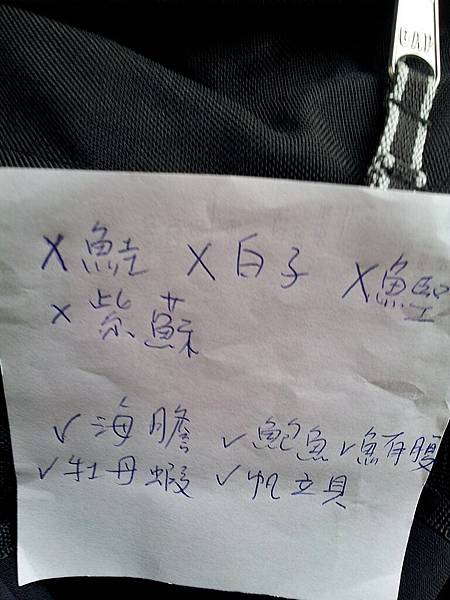 GAP
X 鮭 X 白子 X 鰹
X 紫蘇
✓海膽 ✓鮑魚 ✓鮪腹
✓牡丹蝦 ✓帆立貝